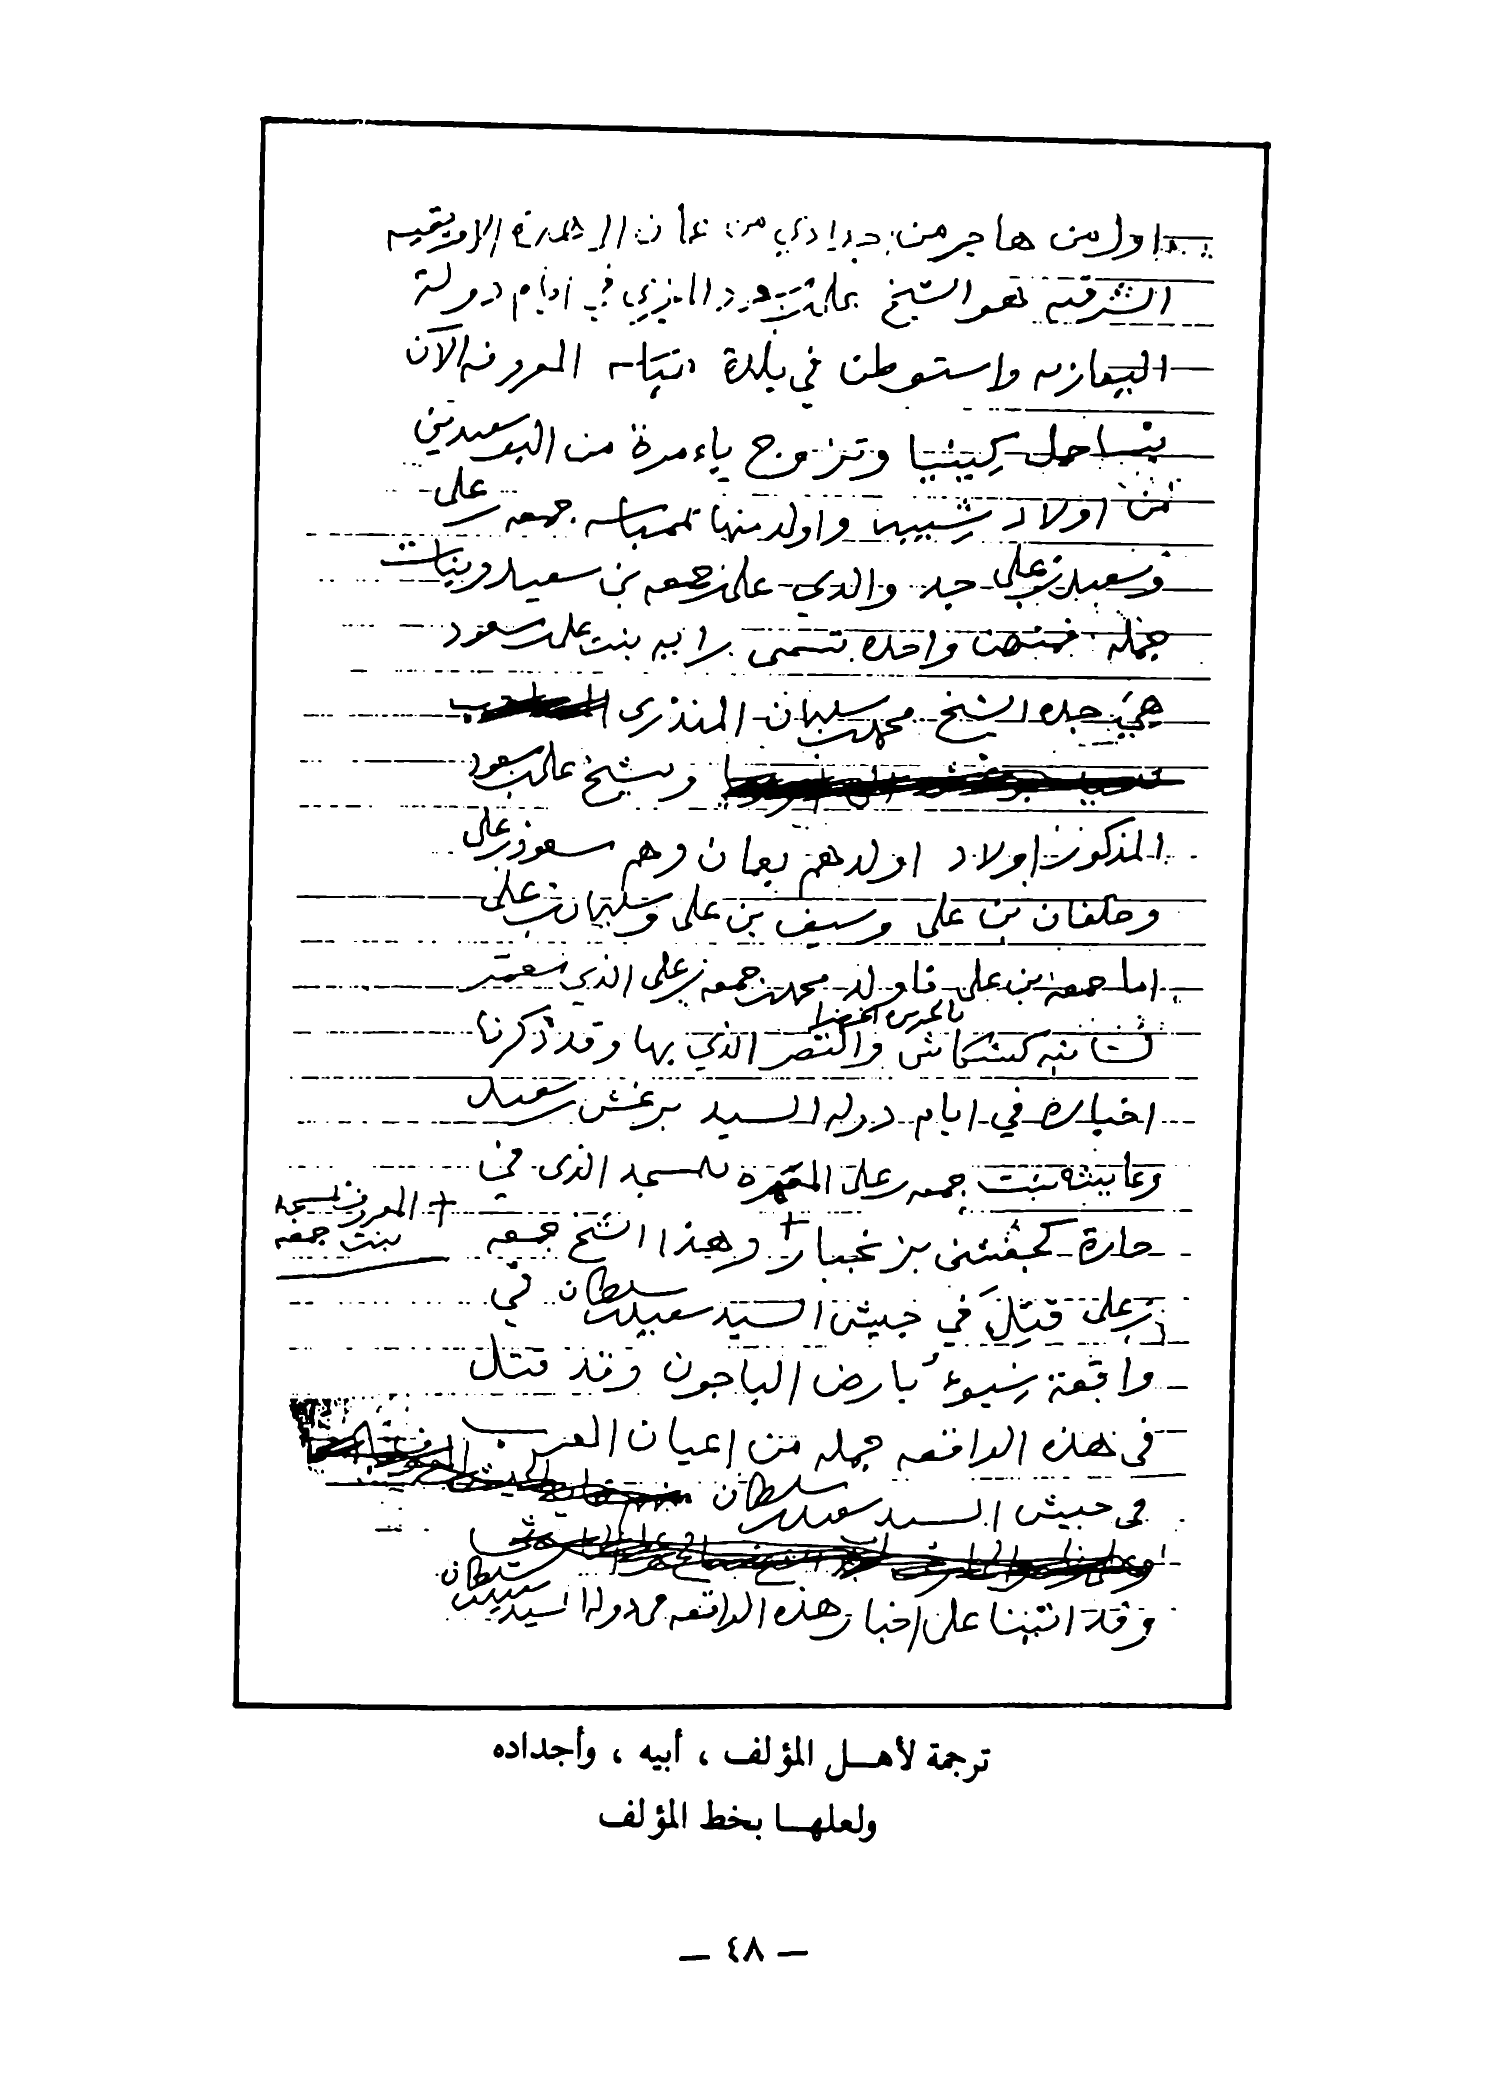 اول من هاجر من اجدادي من عمان الى هذه الافريقيه
الشرقيه هو الشيخ علي بن مسعود المنذري في ايام دولة
اليعاربه واستوطن في بلدة المعروفه الآن
بساحل كينيا وتزوج باءمرة من البوسعيدين
من اولاد واولد منها بممباسه جمعه بن علي
وسعيد بن علي جد والدي علي بن جمعه بن سعيد وبنات
جمله فمنهن واحده تسمى رابيه بنت علي بن مسعود
هي جده الشيخ محمد بن سليمان المنذري
وللشيخ علي بن مسعود
المذكور اولاد اولدهم بعمان وهم مسعود بن علي
وخلفان بن علي وسيف بن علي وسليمان بن علي
اما جمعه بن علي فاولد محمد بن جمعه بن علي الذي
والقصر الذي بها وقد ذكرنا
اخباره في ايام دوله السيد برغش بن سعيد
وعايشه بنت جمعه بن علي للمسجد الذي في
حارة بزنجبار + وهذا الشيخ جمعه
+ المعروف بمسجد
بنت جمعه
بن علي قتل في جيش السيد سعيد بن سلطان في
واقعة سيوء بارض الباجون وقد قتل
في هذه الواقعه جمله من اعيان العرب
في جيش السيد سعيد بن سلطان
وقد اتينا على اخبار هذه الواقعه في دولة السيد سعيد بن سلطان
ترجمة لأهـل المؤلف ، أبيه ، وأجداده
ولعلهـا بخط المؤلف
— ٤٨ —